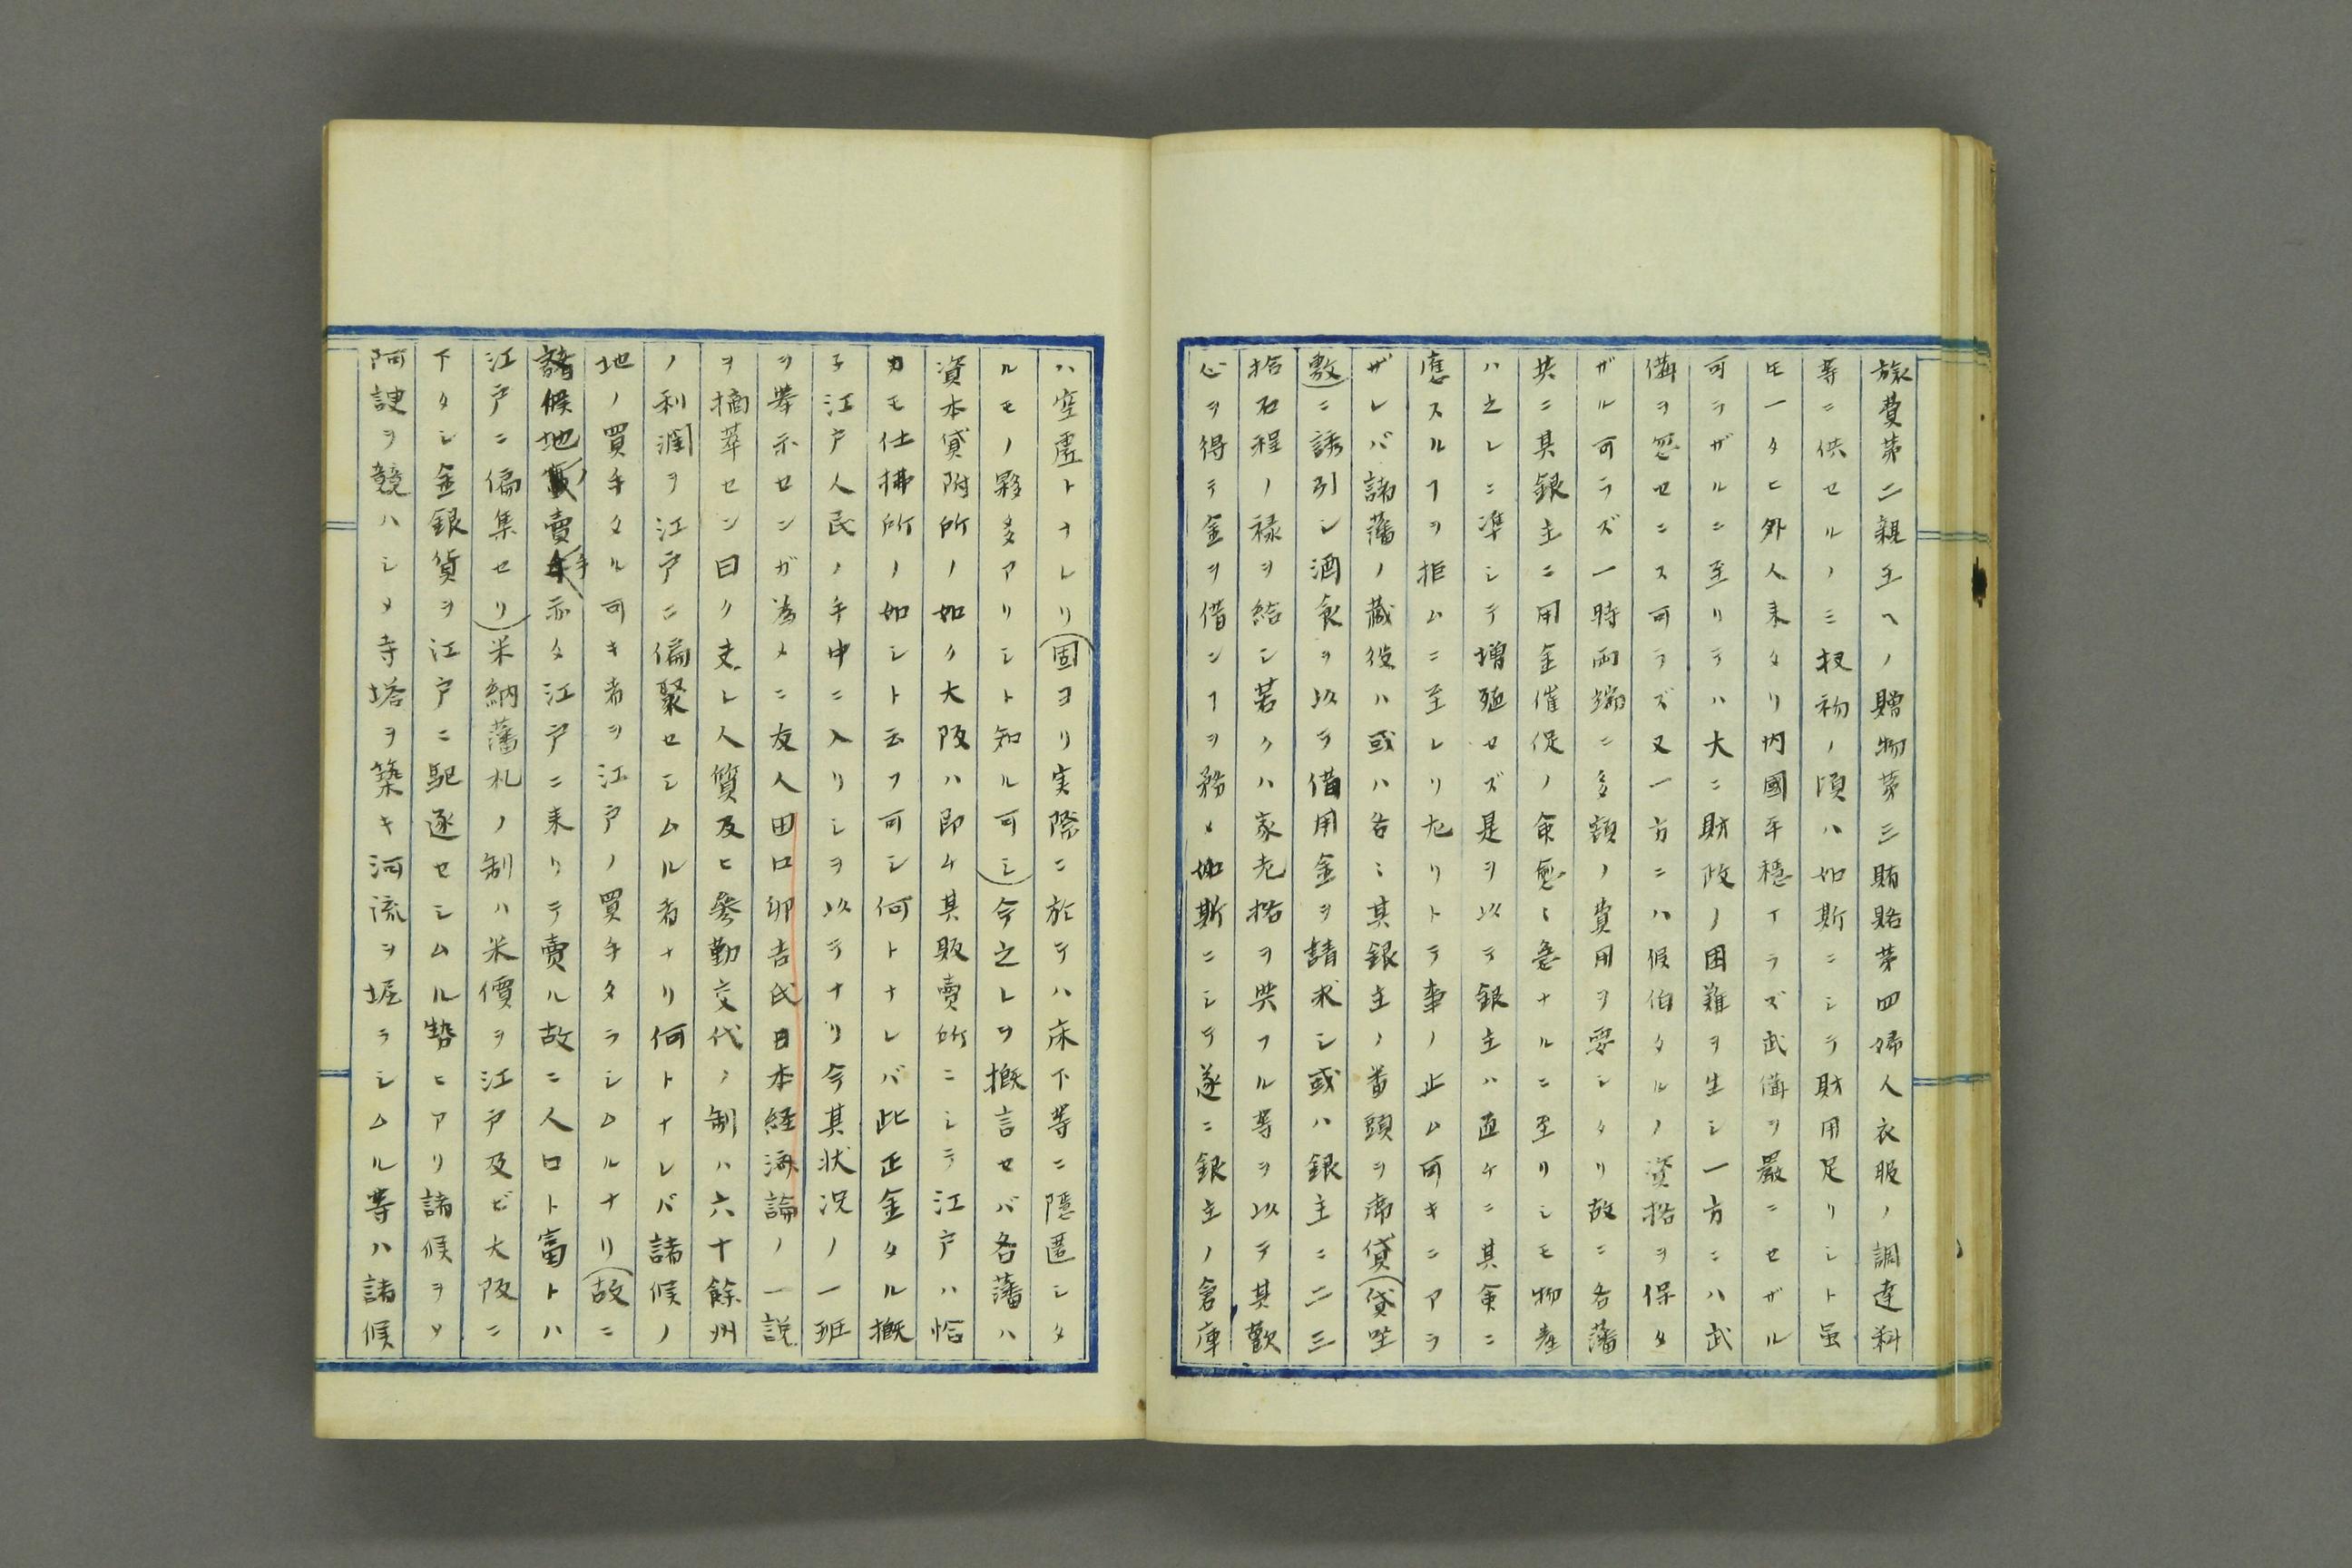 旅費第二親王ヘノ贈物第三賄賂第四婦人衣服ノ調達料
等ニ供セルノミ扨初ノ頃ハ如斯ニシテ財用足リシト虽
モ一タヒ外人来タリ内國平穏イラズ武備ヲ嚴ニセザル
可ラザルニ至リテハ大ニ財政ノ困難ヲ生シ一方ニハ武
備ヲ忽セニス可ラズ又一方ニハ候伯タルノ資格ヲ保タ
ザル可ラズ一時両端ニ多額ノ費用ヲ要シタリ故ニ各藩
共ニ其銀主ニ用金催促ノ命愈々急ナルニ至リシモ物産
ハ之レニ準シテ増殖セズ是ヲ以テ銀主ハ直ケニ其命ニ
應スルヿヲ拒ムニ至レリ尤リトテ事ノ止ム可キニアラ
ザレバ諸藩ノ藏役ハ或ハ各々其銀主ノ番頭ヲ席貸(貸坐
敷)ニ誘引シ酒食ヲ以テ借用金ヲ請求シ或ハ銀主ニ二三
拾石程ノ禄ヲ給シ若クハ家老格ヲ與フル等ヲ以テ其歡
心ヲ得テ金ヲ借ンヿヲ務メ如斯ニシテ遂ニ銀主ノ倉庫
ハ空虚トナレリ(固ヨリ実際ニ於テハ床下等ニ隠匿シタ
ルモノ夥多アリシト知ル可シ)今之レヲ概言セバ各藩ハ
資本貸附所ノ如ク大阪ハ即ケ其販賣所ニシテ江戸ハ恰
カモ仕拂所ノ如シト云フ可シ何トナレバ此正金タル概
子江戸人民ノ手中ニ入リシヲ以テナリ今其状況ノ一班
ヲ挙示センガ為メニ友人田口卯吉氏日本経済論ノ一説
ヲ摘萃セン曰ク夫レ人質及ヒ參勤交代ノ制ハ六十餘州
ノ利潤ヲ江戸ニ偏聚セシムル者ナリ何トナレバ諸候ノ
地ノ買手タル可キ者ヲ江戸ノ買手タラシムルナリ(故ニ
諸候地ノ賣手亦タ江戸ニ来リテ賣ル故ニ人口ト富トハ
江戸ニ偏集セリ)米納藩札ノ制ハ米價ヲ江戸及ビ大阪ニ
下タシ金銀貨ヲ江戸ニ駆逐セシムル勢ヒアリ諸候ヲメ
阿諛ヲ競ハシメ寺塔ヲ築キ河流ヲ堀ラシムル等ハ諸候